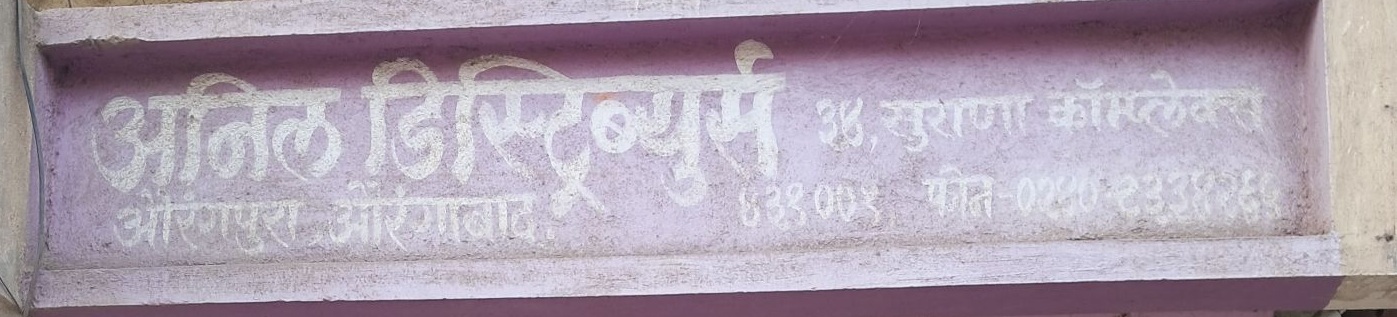 अनिल डिस्ट्रिब्युर्स ३४, सुराणा कॉम्प्लेक्स
औरंगपुरा औरंगाबाद. ४३१००१ फोन-०२४०-